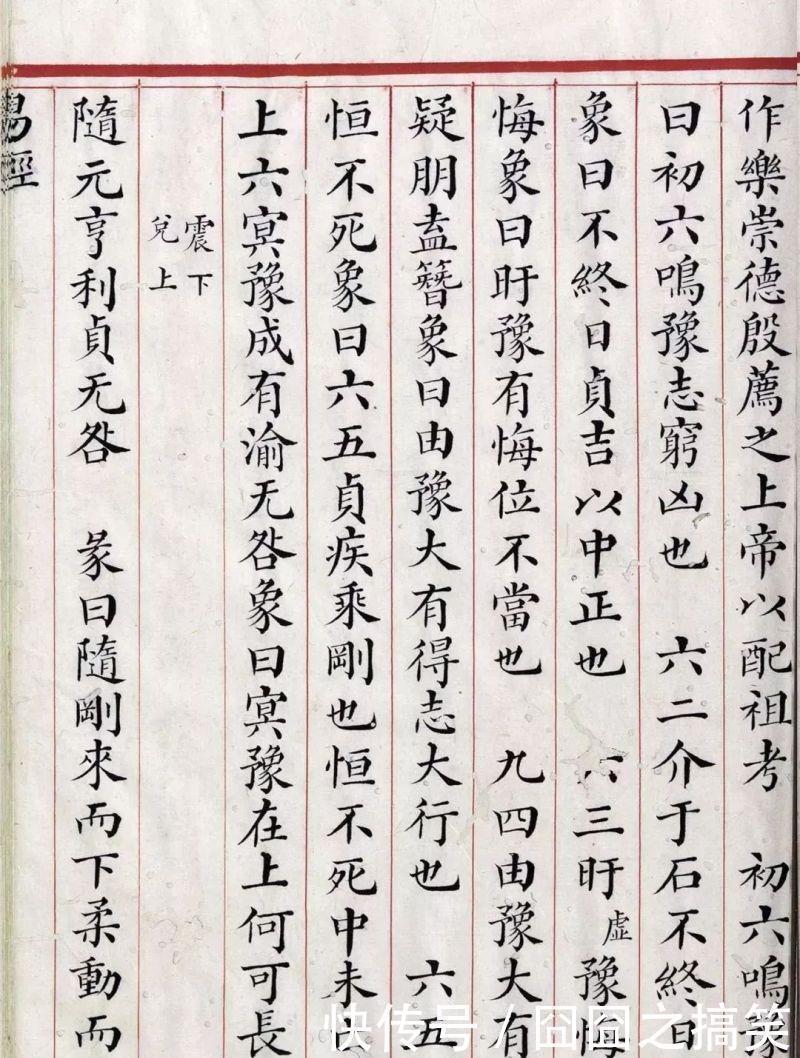 作樂崇德殷薦之上帝以配祖考　初六鳴豫
曰初六鳴豫志窮凶也　六二介于石不終日
象曰不終日貞吉以中正也　六三盱虛豫悔
悔象曰盱豫有悔位不當也　九四由豫大有
疑朋盍簪象曰由豫大有得志大行也　六五
恒不死象曰六五貞疾乘剛也恒不死中未
上六冥豫成有渝无咎象曰冥豫在上何可長
震下
兌上
隨元亨利貞无咎　彖曰隨剛來而下柔動而
易經
快传号 / 囧囧之搞笑